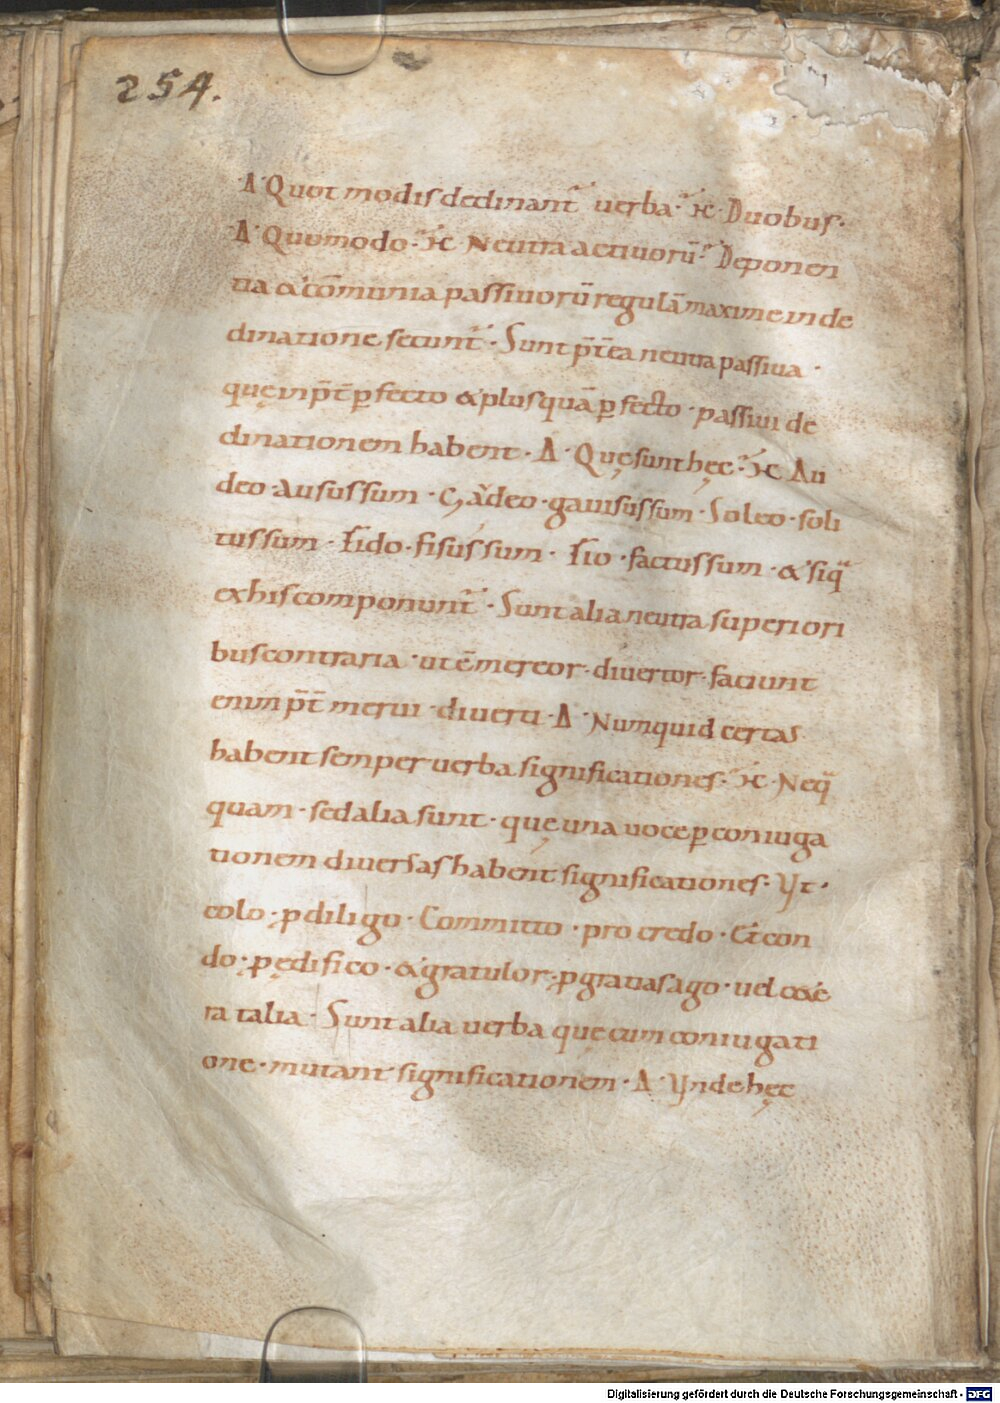 254.
Δ · Quot modis declinant̄ uerba · ϻ · Duobus ·
Δ · Quomodo · ϻ · Neutra actiuorū · Deponen
tia & cōmunia passiuorū regulā maxime in de
clinatione secunt̄ · Sunt p̄t̄ea neutra passiua ·
quę in p̄t̄ ꝑfecto & plusquā ꝑfecto · passiui de
clinationem habent · Δ · Quę sunt hęc · ϻ Au
deo · ausus sum · Gaudeo · gauisus sum · Soleo · soli
tus sum · Fido · fisus sum · Fio · factus sum · & siq̄
ex his componunt̄ · Sunt alia neutra superiori
bus contraria · ut ē mereor · diuertor · faciunt
enim p̄t̄ merui · diuerti · Δ · Numquid certas
habent semper uerba significationes · ϻ · Neq̄
quam · sed alia sunt · quę una uoce ꝑ coniuga
tionem diuersas habent significationes · Ut ·
colo · ꝓ diligo · Committo · pro credo · Et con
do · ꝓ ędifico · & gratulor · ꝓ gratias ago · uel cæte
ra talia · Sunt alia uerba quę cum coniugati
one · mutant significationem · Δ · Unde hęc
Digitalisierung gefördert durch die Deutsche Forschungsgemeinschaft - DFG